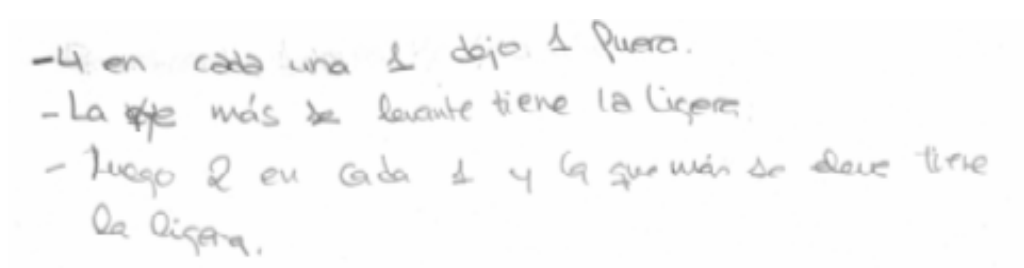 -4 en cada una 1 dejo 1 fuera.
- La que más se levante tiene la ligera
- Luego 2 en cada 1 y la que más se eleve tiene
la ligera.